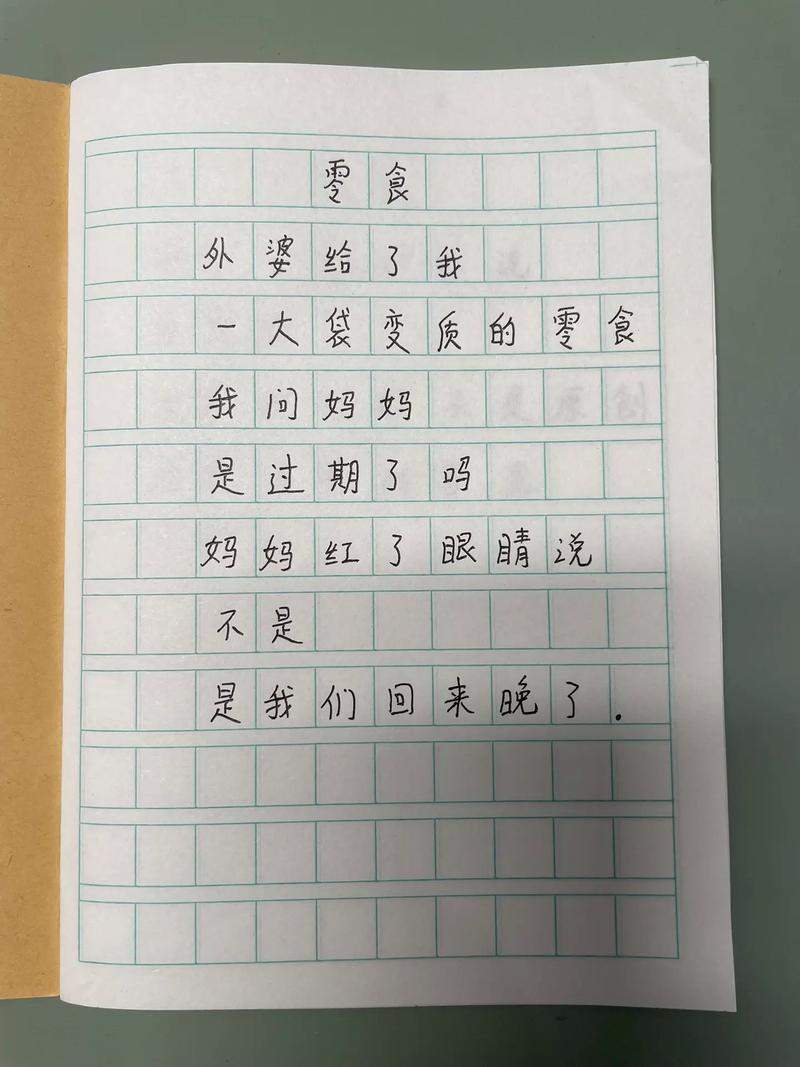 零食
外婆给了我
一大袋变质的零食
我问妈妈
是过期了吗
妈妈红了眼睛说
不是
是我们回来晚了.